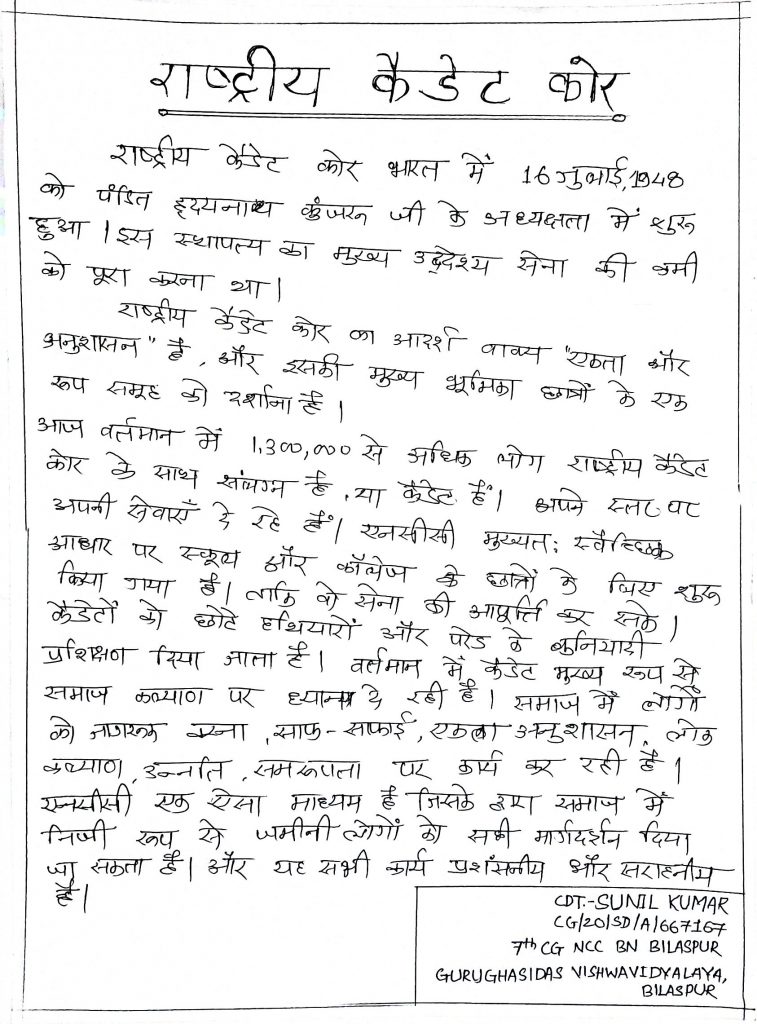 राष्ट्रीय कैडेट कोर
राष्ट्रीय कैडेट कोर भारत में 16 जुलाई, 1948
को पंडित हृदयनाथ कुंजरू जी के अध्यक्षता में शुरू
हुआ। इस स्थापत्य का मुख्य उद्देश्य सेना की कमी
को पूरा करना था।
राष्ट्रीय कैडेट कोर का आदर्श वाक्य "एकता और
अनुशासन" है, और इसकी मुख्य भूमिका छात्रों के एक
रूप समूह को दर्शाना है।
आज वर्तमान में 1,300,000 से अधिक लोग राष्ट्रीय कैडेट
कोर के साथ संलग्न है, या कैडेट हैं। अपने स्तर पर
अपनी सेवाएँ दे रहे हैं। एनसीसी मुख्यत: स्वैच्छिक
आधार पर स्कूल और कॉलेज के छात्रों के लिए शुरू
किया गया है। ताकि वो सेना की आपूर्ति कर सके।
कैडेटों को छोटे हथियारों और परेड के बुनियादी
प्रशिक्षण दिया जाता है। वर्तमान में कैडेट मुख्य रूप से
समाज कल्याण पर ध्यान दे रही है। समाज में लोगों
को जागरूक करना, साफ-साफाई, एकता अनुशासन, लोक
कल्याण, उन्नति, समरूपता पर कार्य कर रही है।
एनसीसी एक ऐसा माध्यम है जिसके द्वारा समाज में
निजी रूप से जमीनी लोगों को सही मार्गदर्शन दिया
जा सकता है। और यह सभी कार्य प्रशंसनीय और सराहनीय
है।
CDT.-SUNIL KUMAR
CG/20/SD/A/667167
7th CG NCC BN BILASPUR
GURUGHASIDAS VISHWAVIDYALAYA,
BILASPUR